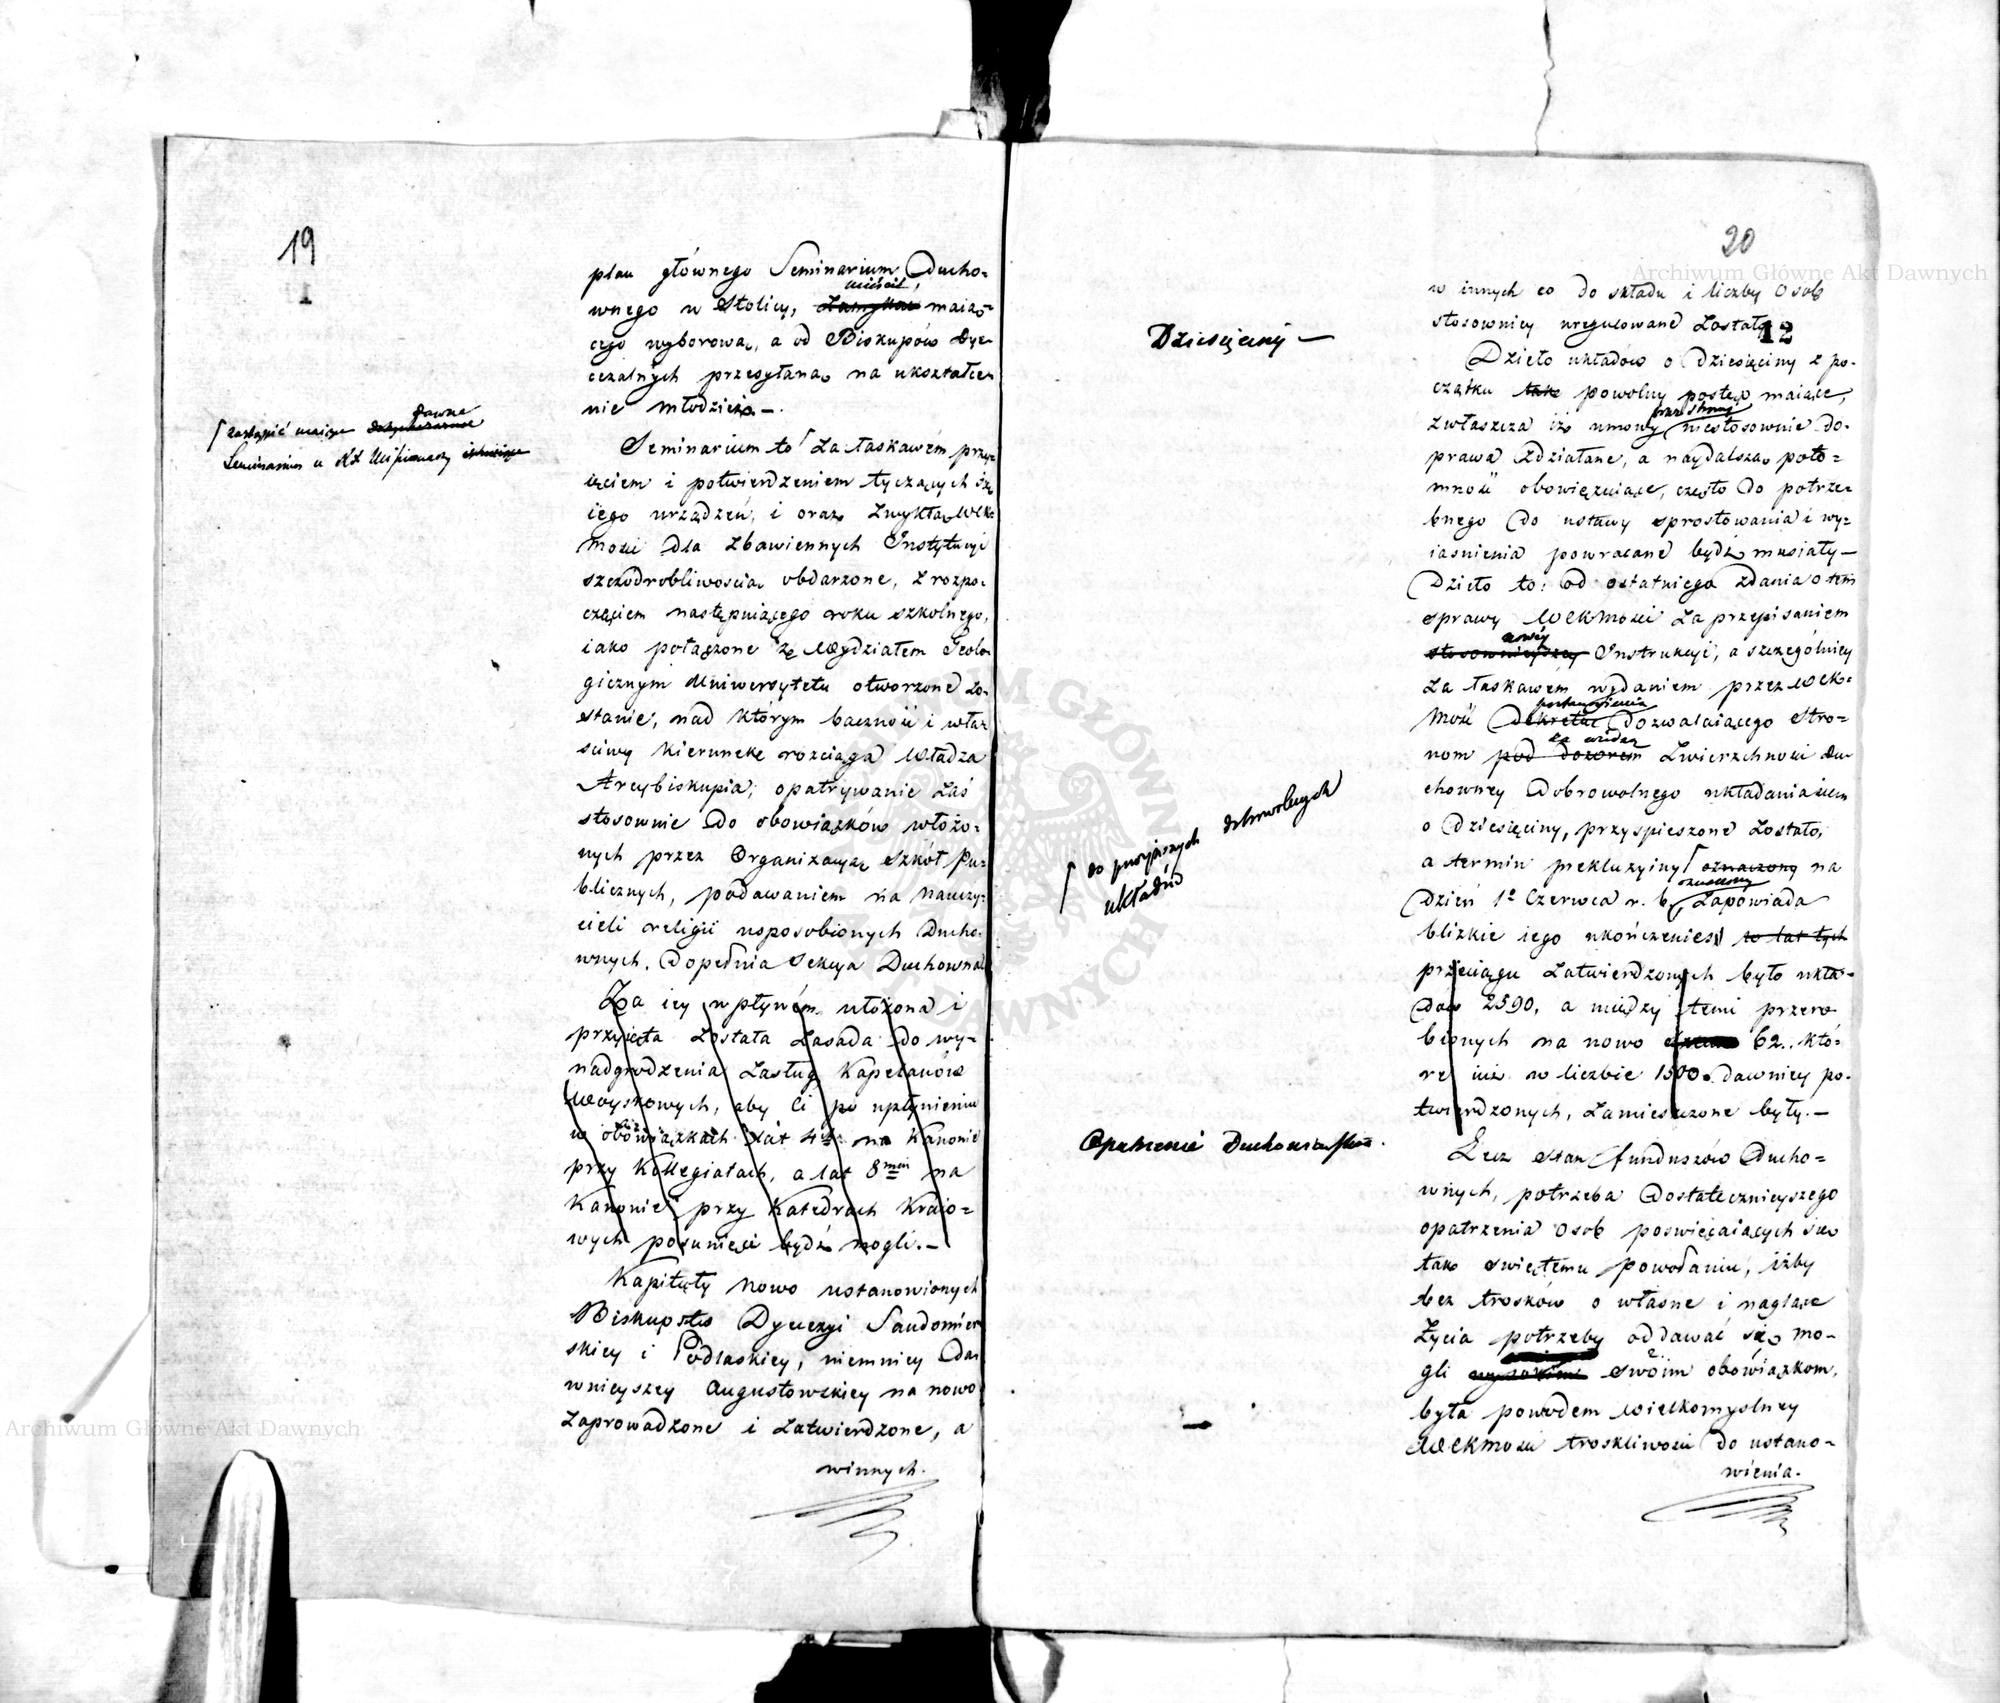 19
plan głównego Seminarium Ducho-
mieścić
wnego w Stolicy, maiąc-
cego wyborową, a od Biskupów Dye-
cezalnych przesyłaną na ukształce-
nie młodzież.-
dawne
zastąpić maiące
Seminarium u XX Missionarzy istniejące
Seminarium to za łaskawém przy-
ięciem i potwierdzeniem tyczących się
iego urządzeń, i oraz zwykłą WCK
Mości dla zbawiennych Instytucyi
szczodrobliwością obdarzone, z rozpo-
częciem następuiącego roku szkolnego,
iako połączone ze Wydziałem Teolo-
gicznym Uniwersytetu otworzone zo-
stanie, nad którym baczność i wła-
ściwy kierunek rozciąga Władza
Arcybiskupia; opatrywanie zaś
stosownie do obowiązków włożo-
nych przez Organizacyą Szkół Pu-
blicznych, podawaniem na Nauczy-
cieli religii usposobionych Ducho-
wnych, dopełnia Sekcya Duchowna
Za iey wpływém ułożona i
przyięta została zasada do wy-
nadgrodzenia zasług Kapelanów
Woyskowych, aby Ci po upłynieniu
w obowiązkach lat 4ch na Kanonie
przy Kollegiatach, a lat 8miu na
Kanonie przy Katedrach Kraio-
wych posunięci bydź mogli.-
Kapituły nowo ustanowionych
Biskupstw Dyecezyi Sandomier-
skiey i Podlaskiey, niemniey da-
wnieyszey Augustowskiey na nowo
zaprowadzone i zatwierdzone, a
winnych.
20
w innych co do składu i liczby Osób
stosowniey uregulowane zostały.
12
Dziesięciny -
Dzieło układów o Dziesięciny z po-
czątku tak powolny postęp maiące,
przez strony
zwłaszcza iż umowy niestosownie do
prawa zdziałane, a naydalszą poto-
mność obowiązuiące, często do potrze-
bnego do ustawy sprostowania i wy-
iaśnienia powracane bydź musiały-
Dzieło to: od ostatniego zdania o tém
sprawy WCKMości za przepisaniem
nowéy
stosownieyszey Instrukcyi, a szczególniey
za łaskawém wydaniem przez WCK-
postanowienia
Mość dekretu dozwalaiącego stro-
za wiedzą
nom pod dozorem Zwierzchności du-
chowney dobrowolnego układania się
o Dziesięciny, przyspieszone zostało,
do przyiaznych dobrowolnych
układów
a termin prekluzyiny oznaczony na
oznaczony
dzień 1o Czerwca r. b. zapowiada
blizkie iego ukończenie w lat tych
przeciągu zatwierdzonych było ukła-
dów 2590, a między temi przero-
bionych na nowo 62. któ-
re iuż w liczbie 1500. dawniey po-
twierdzonych, zamieszczone były.-
Opatrzenie Duchowieństwa.
Lecz stan funduszów Ducho-
wnych, potrzeba dostatecznieyszego
opatrzenia osób poświęcaiących się
tak świętemu powołaniu, iżby
bez trosków o własne i naglące
życia potrzeby oddawać się mo-
gli swoim obowiązkom,
była powodem wielkomyślney
WCKMości troskliwości do ustano-
wienia.
Archiwum Główne Akt Dawnych
Archiwum Główne Akt Dawnych